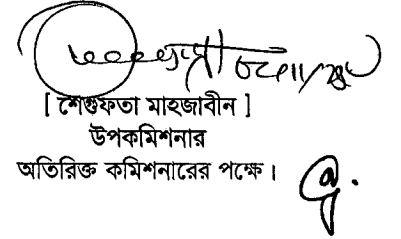 [ শেগুফতা মাহজাবীন ]
উপকমিশনার
অতিরিক্ত কমিশনারের পক্ষে।